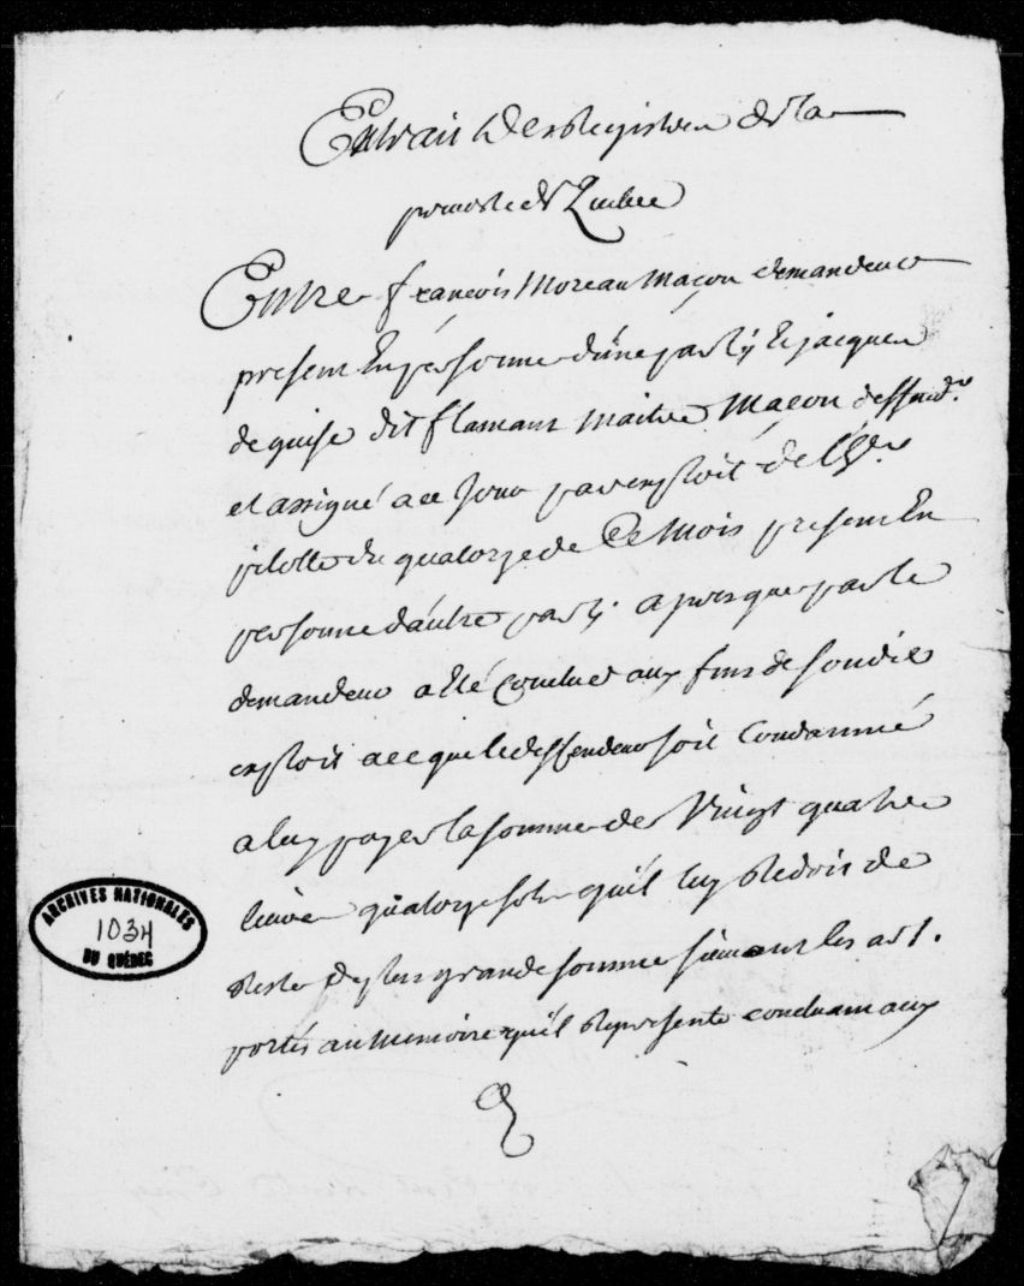 Extrait Des Registres de la
prevosté de Quebec
Entre françois Moreau Maçon demandeur
present En personne d'une party Et jacques
deguise dit flamant Maitre Maçon deffend.r
et assigné a ce Jour par exploit de
pilotte du quatorze de Ce Mois present En
personne d'autre party. apres que par le
demandeur a Eté Conclud aux fins de sondit
exploit a ce que le deffendeur soit Condamné
a luy payer la somme de Vingt quatre
livres quatorze sols qu'il luy Redoit de
Reste de plus grande somme suivant les art.
portés au Memoire qu'il Represente concluant aux
ARCHIVES NATIONALES
1034
DU QUÉBEC